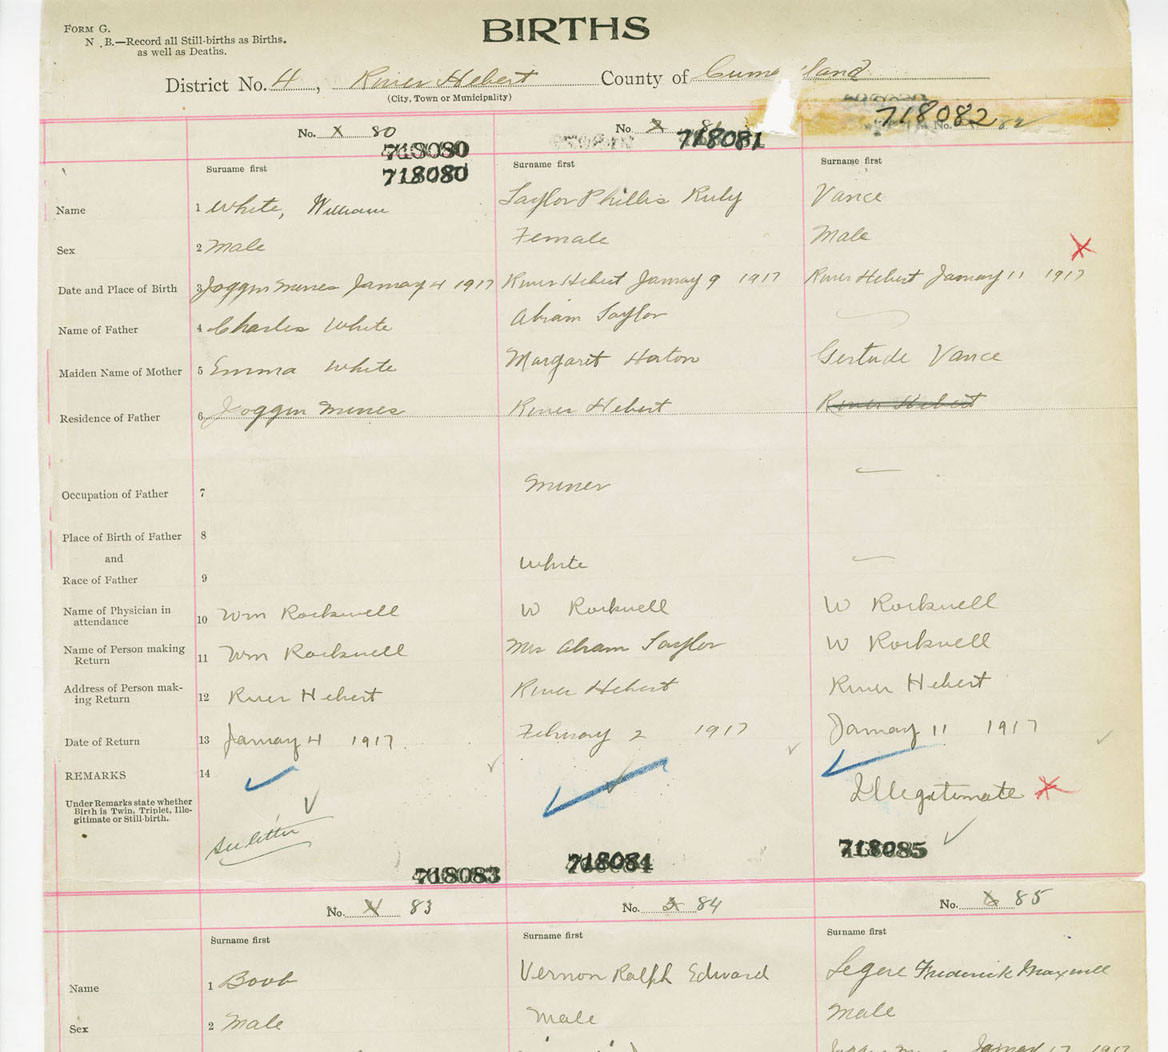 FORM G.
N. B.—Record all Still-births as Births,
as well as Deaths.
BIRTHS
District No. 4, River Hebert County of
(City, Town or Municipality)
No. 80 No. No.
718080 718081 718082
718080
Surname first Surname first Surname first
Name 1 White, William Taylor Phillis Ruby Vance
Sex 2 Male Female Male
Date and Place of Birth 3 Joggin Mines January 4 1917 River Hebert January 9 1917 River Hebert January 11 1917
Name of Father 4 Charles White Abram Taylor
Maiden Name of Mother 5 Emma White Margaret Horton Gertude Vance
Residence of Father 6 Joggin Mines River Hebert River Hebert
Occupation of Father 7 Miner
Place of Birth of Father 8
and
Race of Father 9 White
Name of Physician in attendance 10 Wm Rockwell W Rockwell W Rockwell
Name of Person making Return 11 Wm Rockwell Mrs Abram Taylor W Rockwell
Address of Person making Return 12 River Hebert River Hebert River Hebert
Date of Return 13 January 4 1917 February 2 1917 January 11 1917
REMARKS 14
Under Remarks state whether
Birth is Twin, Triplet, Ille-
gitimate or Still-birth.
Illegitimate
See letter
718083 718084 718085
No. 83 No. 84 No. 85
Surname first Surname first Surname first
Name 1 Boob Vernon Ralph Edward Legere Frederick Maxwell
Sex 2 Male Male Male